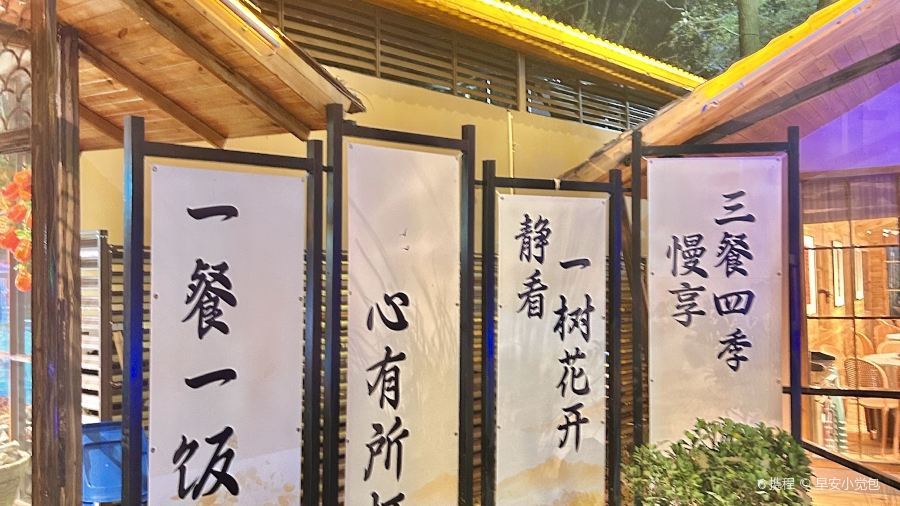 一餐一饭
心有所
静看
一树花开
慢享
三餐四季
携程 早安小觉包